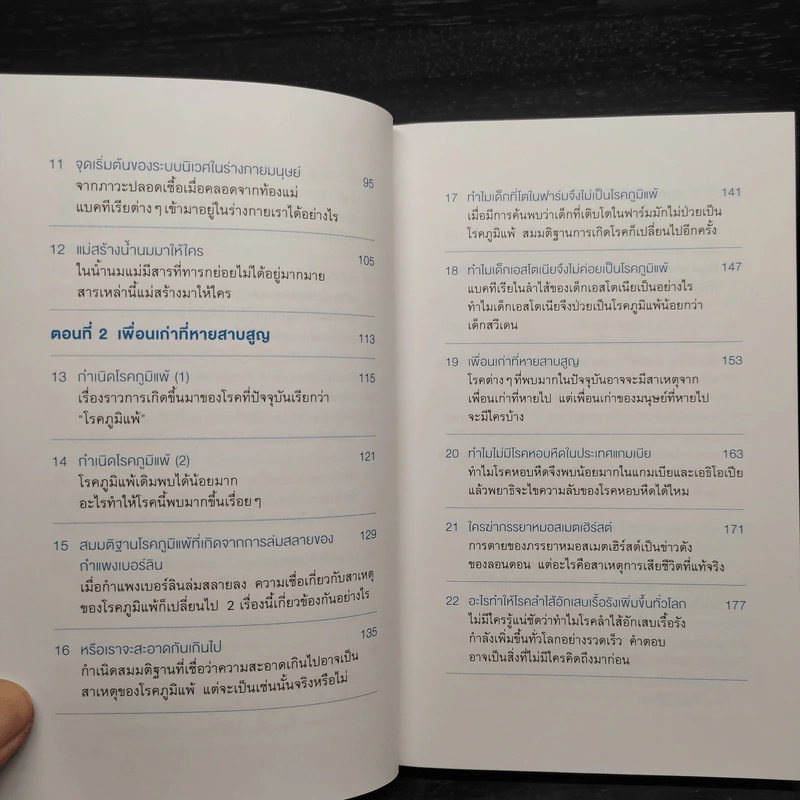 11 จุดเริ่มต้นของระบบนิเวศในร่างกายมนุษย์ 95
จากภาวะปลอดเชื้อเมื่อคลอดจากท้องแม่
แบคทีเรียต่างๆ เข้ามาอยู่ในร่างกายเราได้อย่างไร
12 แม่สร้างน้ำนมมาให้ใคร 105
ในน้ำนมแม่มีสารที่ทารกย่อยไม่ได้อยู่มากมาย
สารเหล่านี้แม่สร้างมาให้ใคร
ตอนที่ 2 เพื่อนเก่าที่หายสาบสูญ 113
13 กำเนิดโรคภูมิแพ้ (1) 115
เรื่องราวการเกิดขึ้นมาของโรคที่ปัจจุบันเรียกว่า
“โรคภูมิแพ้”
14 กำเนิดโรคภูมิแพ้ (2) 121
โรคภูมิแพ้เดิมพบได้น้อยมาก
อะไรทำให้โรคนี้พบมากขึ้นเรื่อยๆ
15 สมมติฐานโรคภูมิแพ้ที่เกิดจากการล่มสลายของ 129
กำแพงเบอร์ลิน
เมื่อกำแพงเบอร์ลินล่มสลายลง ความเชื่อเกี่ยวกับสาเหตุ
ของโรคภูมิแพ้ก็เปลี่ยนไป 2 เรื่องนี้เกี่ยวข้องกันอย่างไร
16 หรือเราจะสะอาดกันเกินไป 135
กำเนิดสมมติฐานที่เชื่อว่าความสะอาดเกินไปอาจเป็น
สาเหตุของโรคภูมิแพ้ แต่จะเป็นเช่นนั้นจริงหรือไม่
17 ทำไมเด็กที่โตในฟาร์มจึงไม่เป็นโรคภูมิแพ้ 141
เมื่อมีการค้นพบว่าเด็กที่เติบโตในฟาร์มมักไม่ป่วยเป็น
โรคภูมิแพ้ สมมติฐานการเกิดโรคก็เปลี่ยนไปอีกครั้ง
18 ทำไมเด็กเอสโตเนียจึงไม่ค่อยเป็นโรคภูมิแพ้ 147
แบคทีเรียในลำไส้ของเด็กเอสโตเนียเป็นอย่างไร
ทำไมเด็กเอสโตเนียจึงป่วยเป็นโรคภูมิแพ้น้อยกว่า
เด็กสวีเดน
19 เพื่อนเก่าที่หายสาบสูญ 153
โรคต่างๆ ที่พบมากในปัจจุบันอาจจะมีสาเหตุจาก
เพื่อนเก่าที่หายไป แต่เพื่อนเก่าของมนุษย์ที่หายไป
จะมีใครบ้าง
20 ทำไมไม่มีโรคหอบหืดในประเทศแกมเบีย 163
ทำไมโรคหอบหืดจึงพบน้อยมากในแกมเบียและเอธิโอเปีย
แล้วพยาธิจะไขความลับของโรคหอบหืดได้ไหม
21 ใครฆ่าภรรยาหมอสเมตเฮิร์สต์ 171
การตายของภรรยาหมอสเมตเฮิร์สต์เป็นข่าวดัง
ของลอนดอน แต่อะไรคือสาเหตุการเสียชีวิตที่แท้จริง
22 อะไรทำให้โรคลำไส้อักเสบเรื้อรังเพิ่มขึ้นทั่วโลก 177
ไม่มีใครรู้แน่ชัดว่าทำไมโรคลำไส้อักเสบเรื้อรัง
กำลังเพิ่มขึ้นทั่วโลกอย่างรวดเร็ว คำตอบ
อาจเป็นสิ่งที่ไม่มีใครคิดถึงมาก่อน